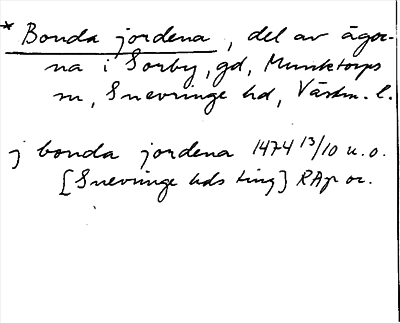 * Bonda jordena, del av ägor-
na i Sorby, gd, Munktorps
sn, Snevringe hd, Västm. l.
j bonda jordena 1474 13/10 u.o.
[Snevringe hds ting] RAp or.